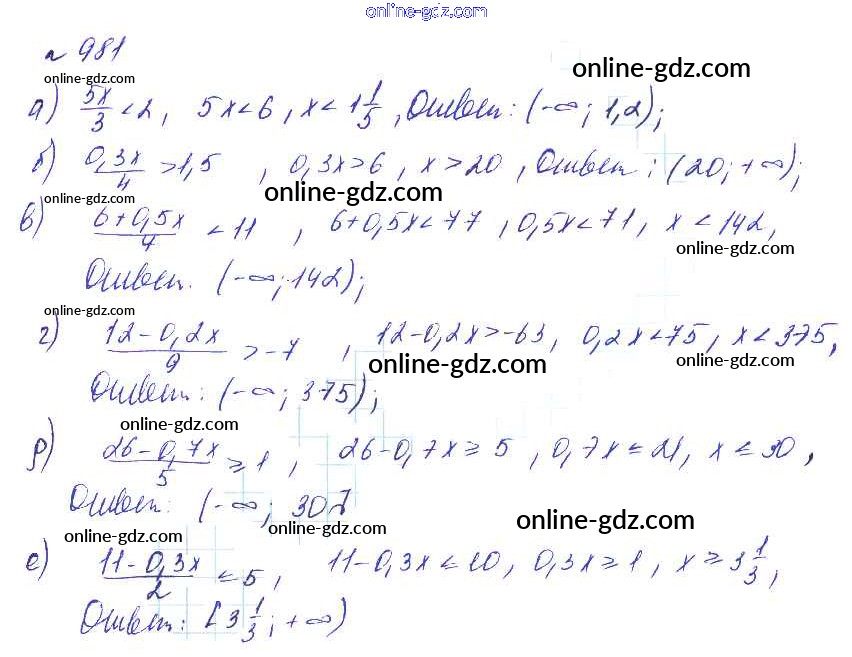 online-gdz.com
№ 981
online-gdz.com
online-gdz.com
а) 5x/3 < 2, 5x < 6, x < 1 1/5, Ответ: (-∞; 1,2);
б) 0,3x/4 > 1,5, 0,3x > 6, x > 20, Ответ: (20; +∞);
online-gdz.com
online-gdz.com
в) 6+0,5x/4 < 11, 6+0,5x < 77, 0,5x < 71, x < 142,
online-gdz.com
Ответ: (-∞; 142);
online-gdz.com
г) 12-0,2x/9 > -7, 12-0,2x > -63, 0,2x < 75, x < 375,
online-gdz.com
online-gdz.com
Ответ: (-∞; 375);
online-gdz.com
д) 26-0,7x/5 ≥ 1, 26-0,7x ≥ 5, 0,7x ≤ 21, x ≤ 30,
Ответ: (-∞; 30]
online-gdz.com
online-gdz.com
online-gdz.com
е) 11-0,3x/2 ≤ 5, 11-0,3x ≤ 10, 0,3x ≥ 1, x ≥ 3 1/3,
Ответ: [3 1/3; +∞)